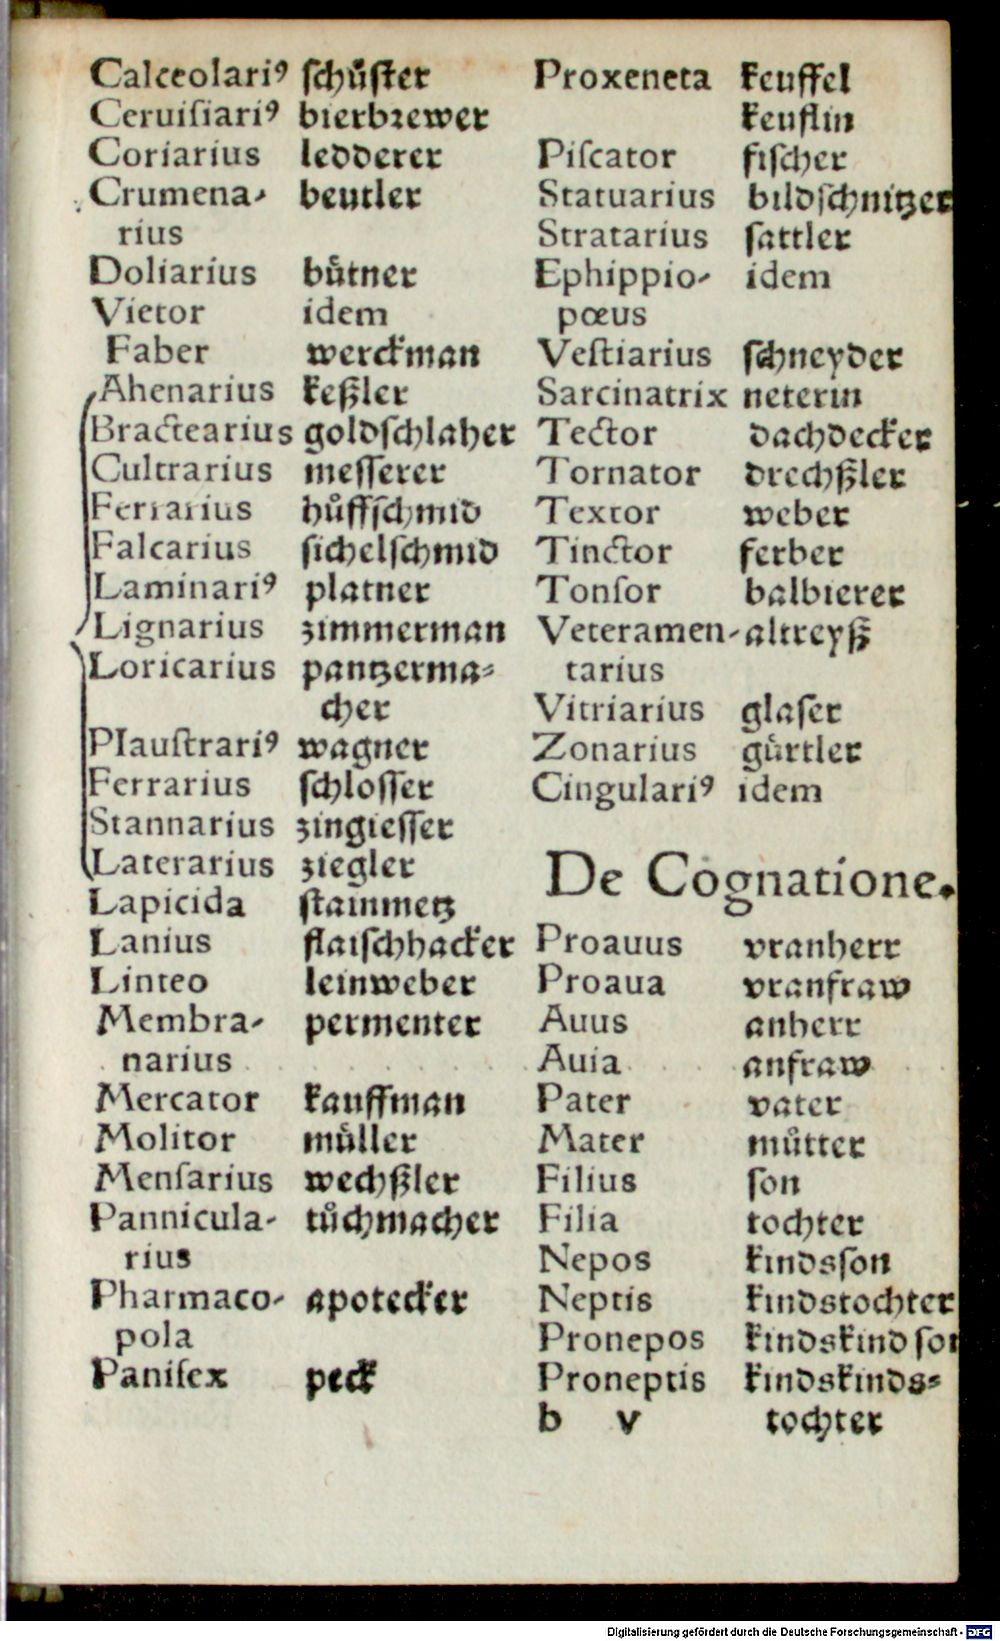 Calceolariꝰ schůster
Ceruisiariꝰ bierbrewer
Coriarius ledderer
Crumena- beutler
rius
Doliarius bůtner
Vietor idem
Faber werckman
Ahenarius keßler
Bractearius goldschlaher
Cultrarius messerer
Ferrarius hůffschmid
Falcarius sichelschmid
Laminariꝰ platner
Lignarius zimmerman
Loricarius pantzerma-
cher
Plaustrariꝰ wagner
Ferrarius schlosser
Stannarius zingiesser
Laterarius ziegler
Lapicida stainmetz
Lanius flaischhacker
Linteo leinweber
Membra- permenter
narius
Mercator kauffman
Molitor müller
Mensarius wechßler
Pannicula- tůchmacher
rius
Pharmaco- apotecker
pola
Panifex peck
Proxeneta keuffel
keuflin
Piscator fischer
Statuarius bildschnitzer
Stratarius sattler
Ephippio- idem
pœus
Vestiarius schneyder
Sarcinatrix neterin
Tector dachdecker
Tornator drechßler
Textor weber
Tinctor ferber
Tonsor balbierer
Veteramen- altreyß
tarius
Vitriarius glaser
Zonarius gürtler
Cingulariꝰ idem
De Cognatione.
Proauus vranherr
Proaua vranfraw
Auus anherr
Auia anfraw
Pater vater
Mater můtter
Filius son
Filia tochter
Nepos kindsson
Neptis kindstochter
Pronepos kindskind son
Proneptis kindskinds-
b v tochter
Digitalisierung gefördert durch die Deutsche Forschungsgemeinschaft - DFG